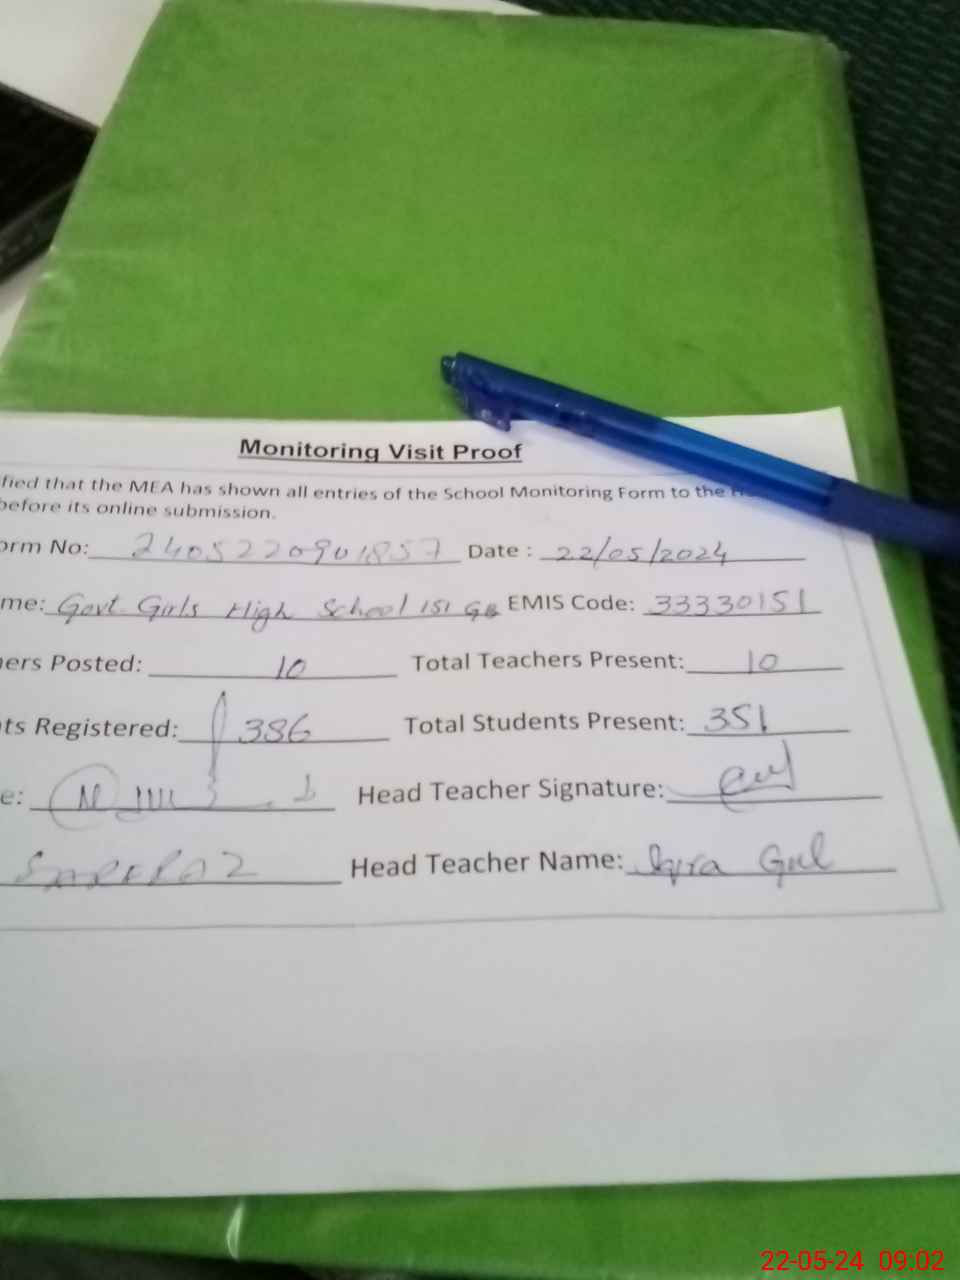 Monitoring Visit Proof
fied that the MEA has shown all entries of the School Monitoring Form to the
before its online submission.
orm No: 2405220901857 Date : 22/05/2024
me: Govt Girls High School 151 GB EMIS Code: 33330151
ers Posted: 10 Total Teachers Present: 10
ts Registered: 386 Total Students Present: 351
e: Head Teacher Signature:
SARFRAZ Head Teacher Name: Iqra Gul
22-05-24 09:02